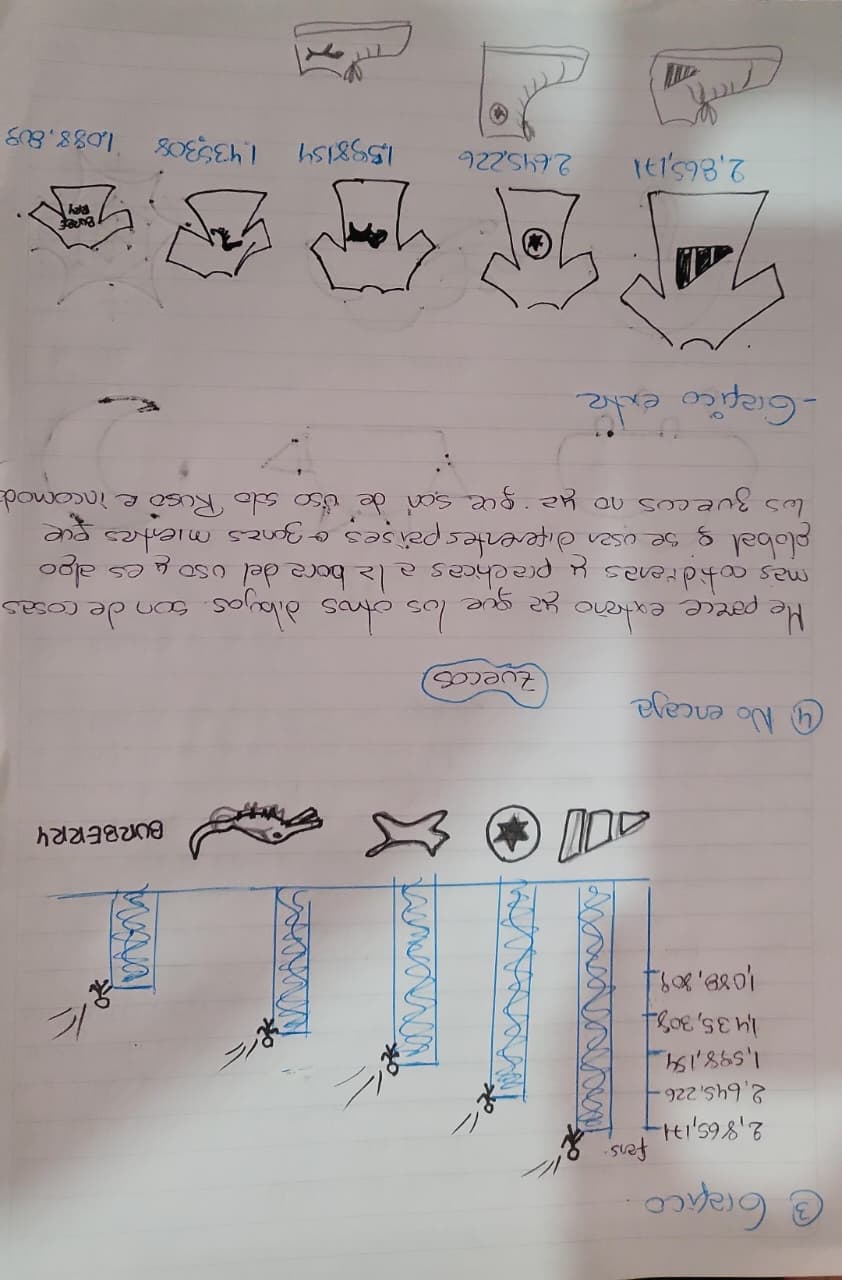 ③ Grafico.
fans.
2,865,171
2,645,226
1,598,154
1,435,308
1,088,809
BURBERRY
④ No encaja
Zuecos
Me parece extraño ya que los otros dibujos son de cosas
mas cotidianas y practicas a la hora del uso y es algo
global q se usan diferentes paises o zonas mientras que
los zuecos no ya que son de uso solo Ruso e incomod
- Grafico extra
BURBE
RRY
2,865,171
2.645,226
1,598,154
1.435,308
1,088,809